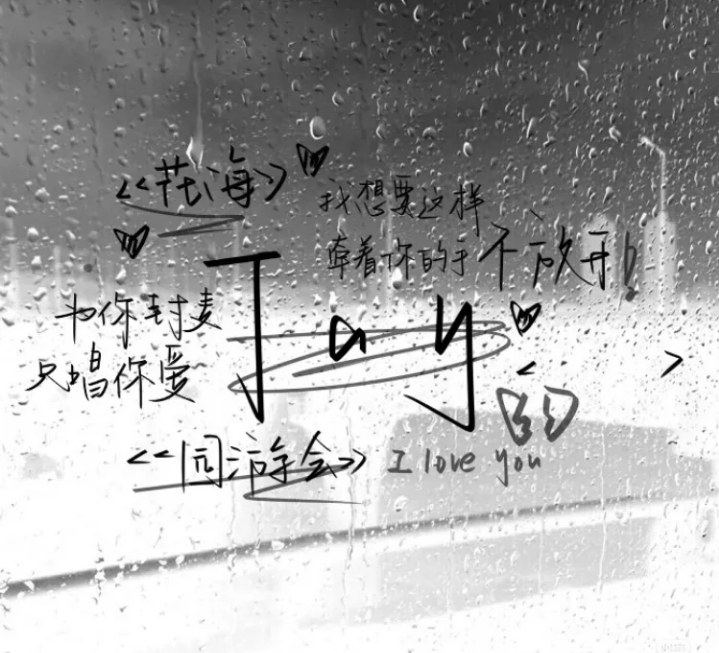 <<花海>>
我想要这样
牵着你的手 不放开!
Jay
你封麦
只唱你爱
< >
<<园游会>> I love you